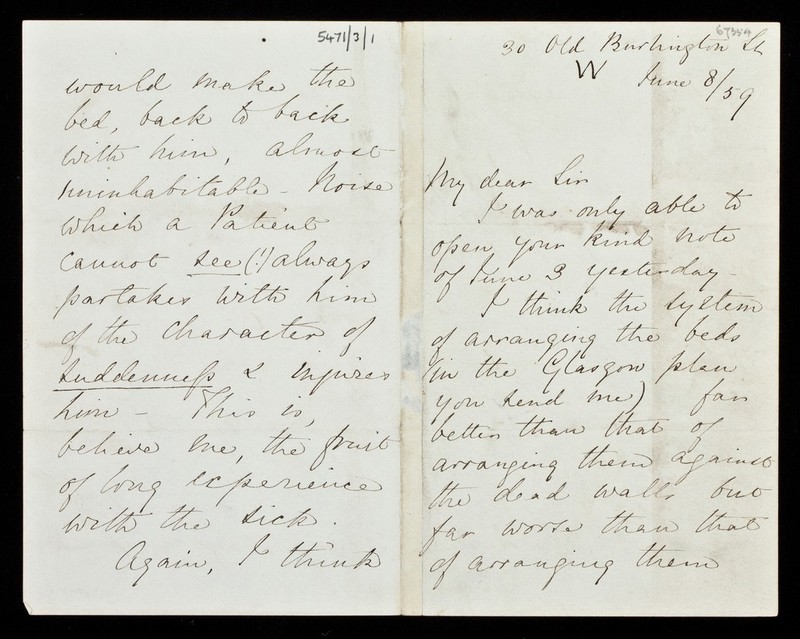 5471/3/1
would make the
bed, back to back
with him, almost
uninhabitable - Noise
which a Patient
cannot see (!) always
partakes with him
of the character of
suddenness & injures
him - This is,
believe me, the fruit
of long experience
with the sick.
Again, I think
67354
30 Old Burlington St
W
June 8/59
My dear Sir
I was only able to
open your kind note
of June 3 yesterday -
I think the system
of arranging the beds
(in the Glasgow plan
you send me) far
better than that of
arranging them against
the dead walls but
far worse than that
of arranging them